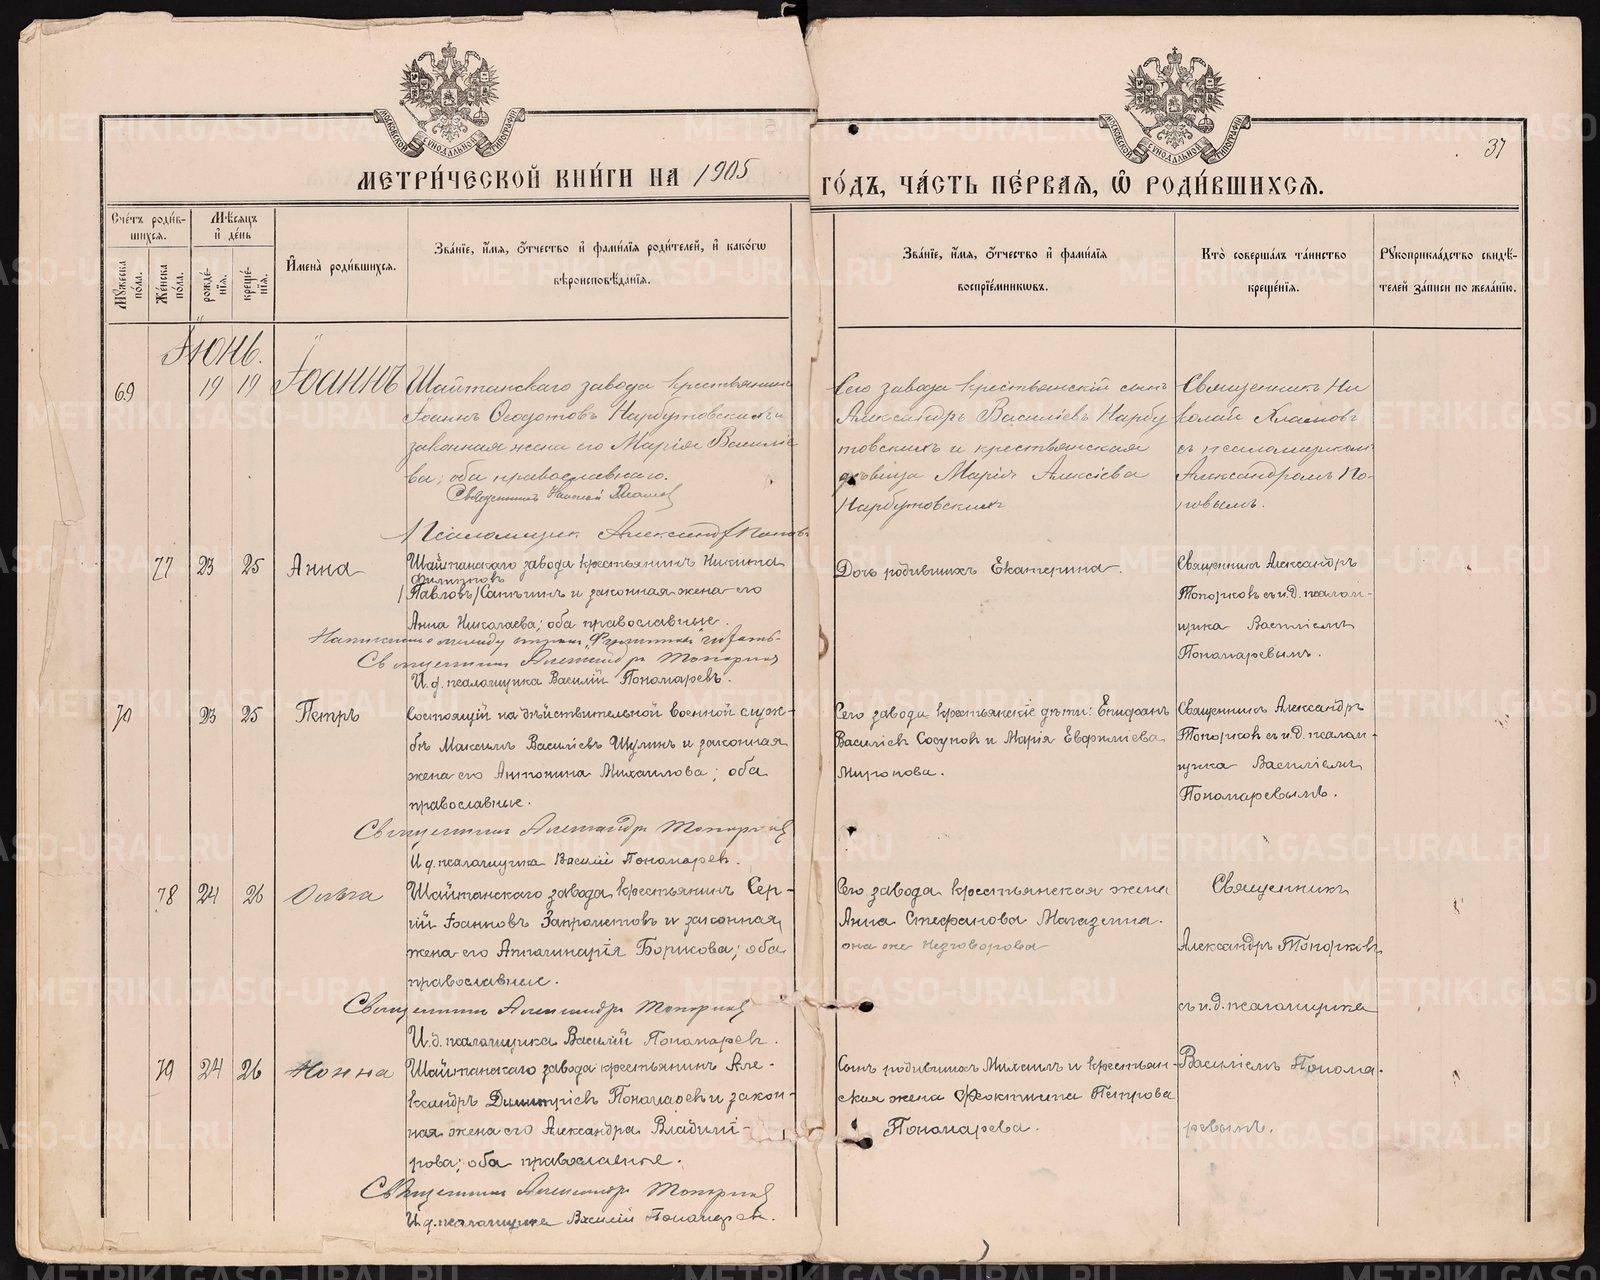 МОСКОВСКОЙ СѴНОДАЛЬНОЙ ТИПОГРАФІИ
МОСКОВСКОЙ СѴНОДАЛЬНОЙ ТИПОГРАФІИ
37
МЕТРИ́ЧЕСКОЙ КНИ́ГИ НА 1905 ГО́ДЪ, ЧА́СТЬ ПЕ́РВАЯ, Ѡ҆ РОДИ́ВШИХСЯ.
Сче́тъ роди́в-
шихся.
Мѣ́сяцъ
и҆ де́нь
Мꙋ́жеска по́ла.
Же́нска по́ла.
рожде́-
нїя.
креще́-
нїя.
И҆мена̀ роди́вшихся.
Зва́нїе, и҆́мя, ѻ҆́тчество и҆ фами́лїя роди́телей, и҆ како́гѡ
вѣроисповѣ́данїя.
Зва́нїе, и҆́мя, ѻ҆́тчество и҆ фами́лїя
воспрїе́мникѡвъ.
Кто̀ соверша́лъ та́инство
креще́нїя.
Рꙋкоприкла́дство свидѣ́-
телей за́писи по жела́нїю.
Іюнь.
69 19 19 Іоаннъ
Шайтанскаго завода крестьянинъ
Іоаннъ Ѳеодотовъ Нарбутовскихъ и
законная жена его Марія Василіе
ва; оба православнаго.
Священникъ Николай Хламовъ
Псаломщик Александр Попов
Сего завода крестьянскій сынъ
Александръ Василіевъ Нарбу
товскихъ и крестьянская
дѣвица Марія Алексіева
Нарбутовскихъ
Священникъ Ни
колай Хламовъ
съ псаломщикомъ
Александромъ По-
повымъ.
77 23 25 Анна
Шайтанскаго завода крестьянинъ Никита
Филипповъ
/Павловъ/ Сапѣгинъ и законная жена его
Анна Николаева; оба православные.
Священник Александр Топорков
И.д. псаломщика Василій Пономаревъ.
Дочь родившихъ Екатерина.
Священникъ Александръ
Топорковъ съ и.д. псалом-
щика Василіемъ
Пономаревымъ.
70 23 25 Петръ
Состоящій на дѣйствительной военной служ-
бѣ Максимъ Василіевъ Шулинъ и законная
жена его Антонина Михаилова; оба
православные.
Священник Александр Топорков
И.д. псаломщика Василій Пономарев.
Сего завода крестьянскіе дѣти: Епифанъ
Василіевъ Сосунов и Марія Евфиміева
Миронова.
Священникъ Александръ
Топорковъ съ и.д. псалом-
щика Василіемъ
Пономаревымъ.
78 24 26 Ольга
Шайтанскаго завода крестьянинъ Сер-
гій Іоанновъ Запрометовъ и законная
жена его Аполлинарія Борисова; оба
православные.
Священник Александр Топорков
И.д. псаломщика Василій Пономарев.
Сего завода крестьянская жена
Анна Стефанова Магазеина.
она же Незговорова
Священникъ
Александръ Топорковъ
съ и.д. псаломщика
79 24 26 Нонна
Шайтанскаго завода крестьянинъ Але-
ксандръ Димитріевъ Пономаревъ и закон-
ная жена его Александра Владимі-
рова; оба православные.
Священник Александр Топорков
И.д. псаломщика Василій Пономарев.
Сынъ родившихъ Михаилъ и крестьян-
ская жена Феоктиста Петрова
Пономарева.
Василіемъ Понома-
ревымъ.
METRIKI.GASO-URAL.RU